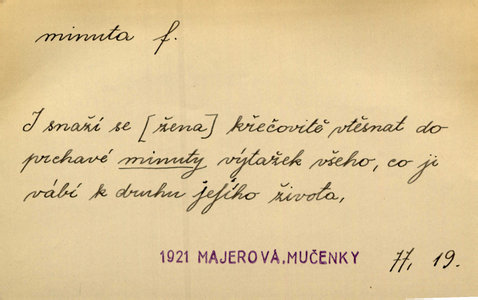 minuta f.
I snaží se [žena] křečovitě vtěsnat do
prchavé minuty výtažek všeho, co ji
vábí k druhu jejího života,
1921 MAJEROVÁ, MUČENKY 77, 19.